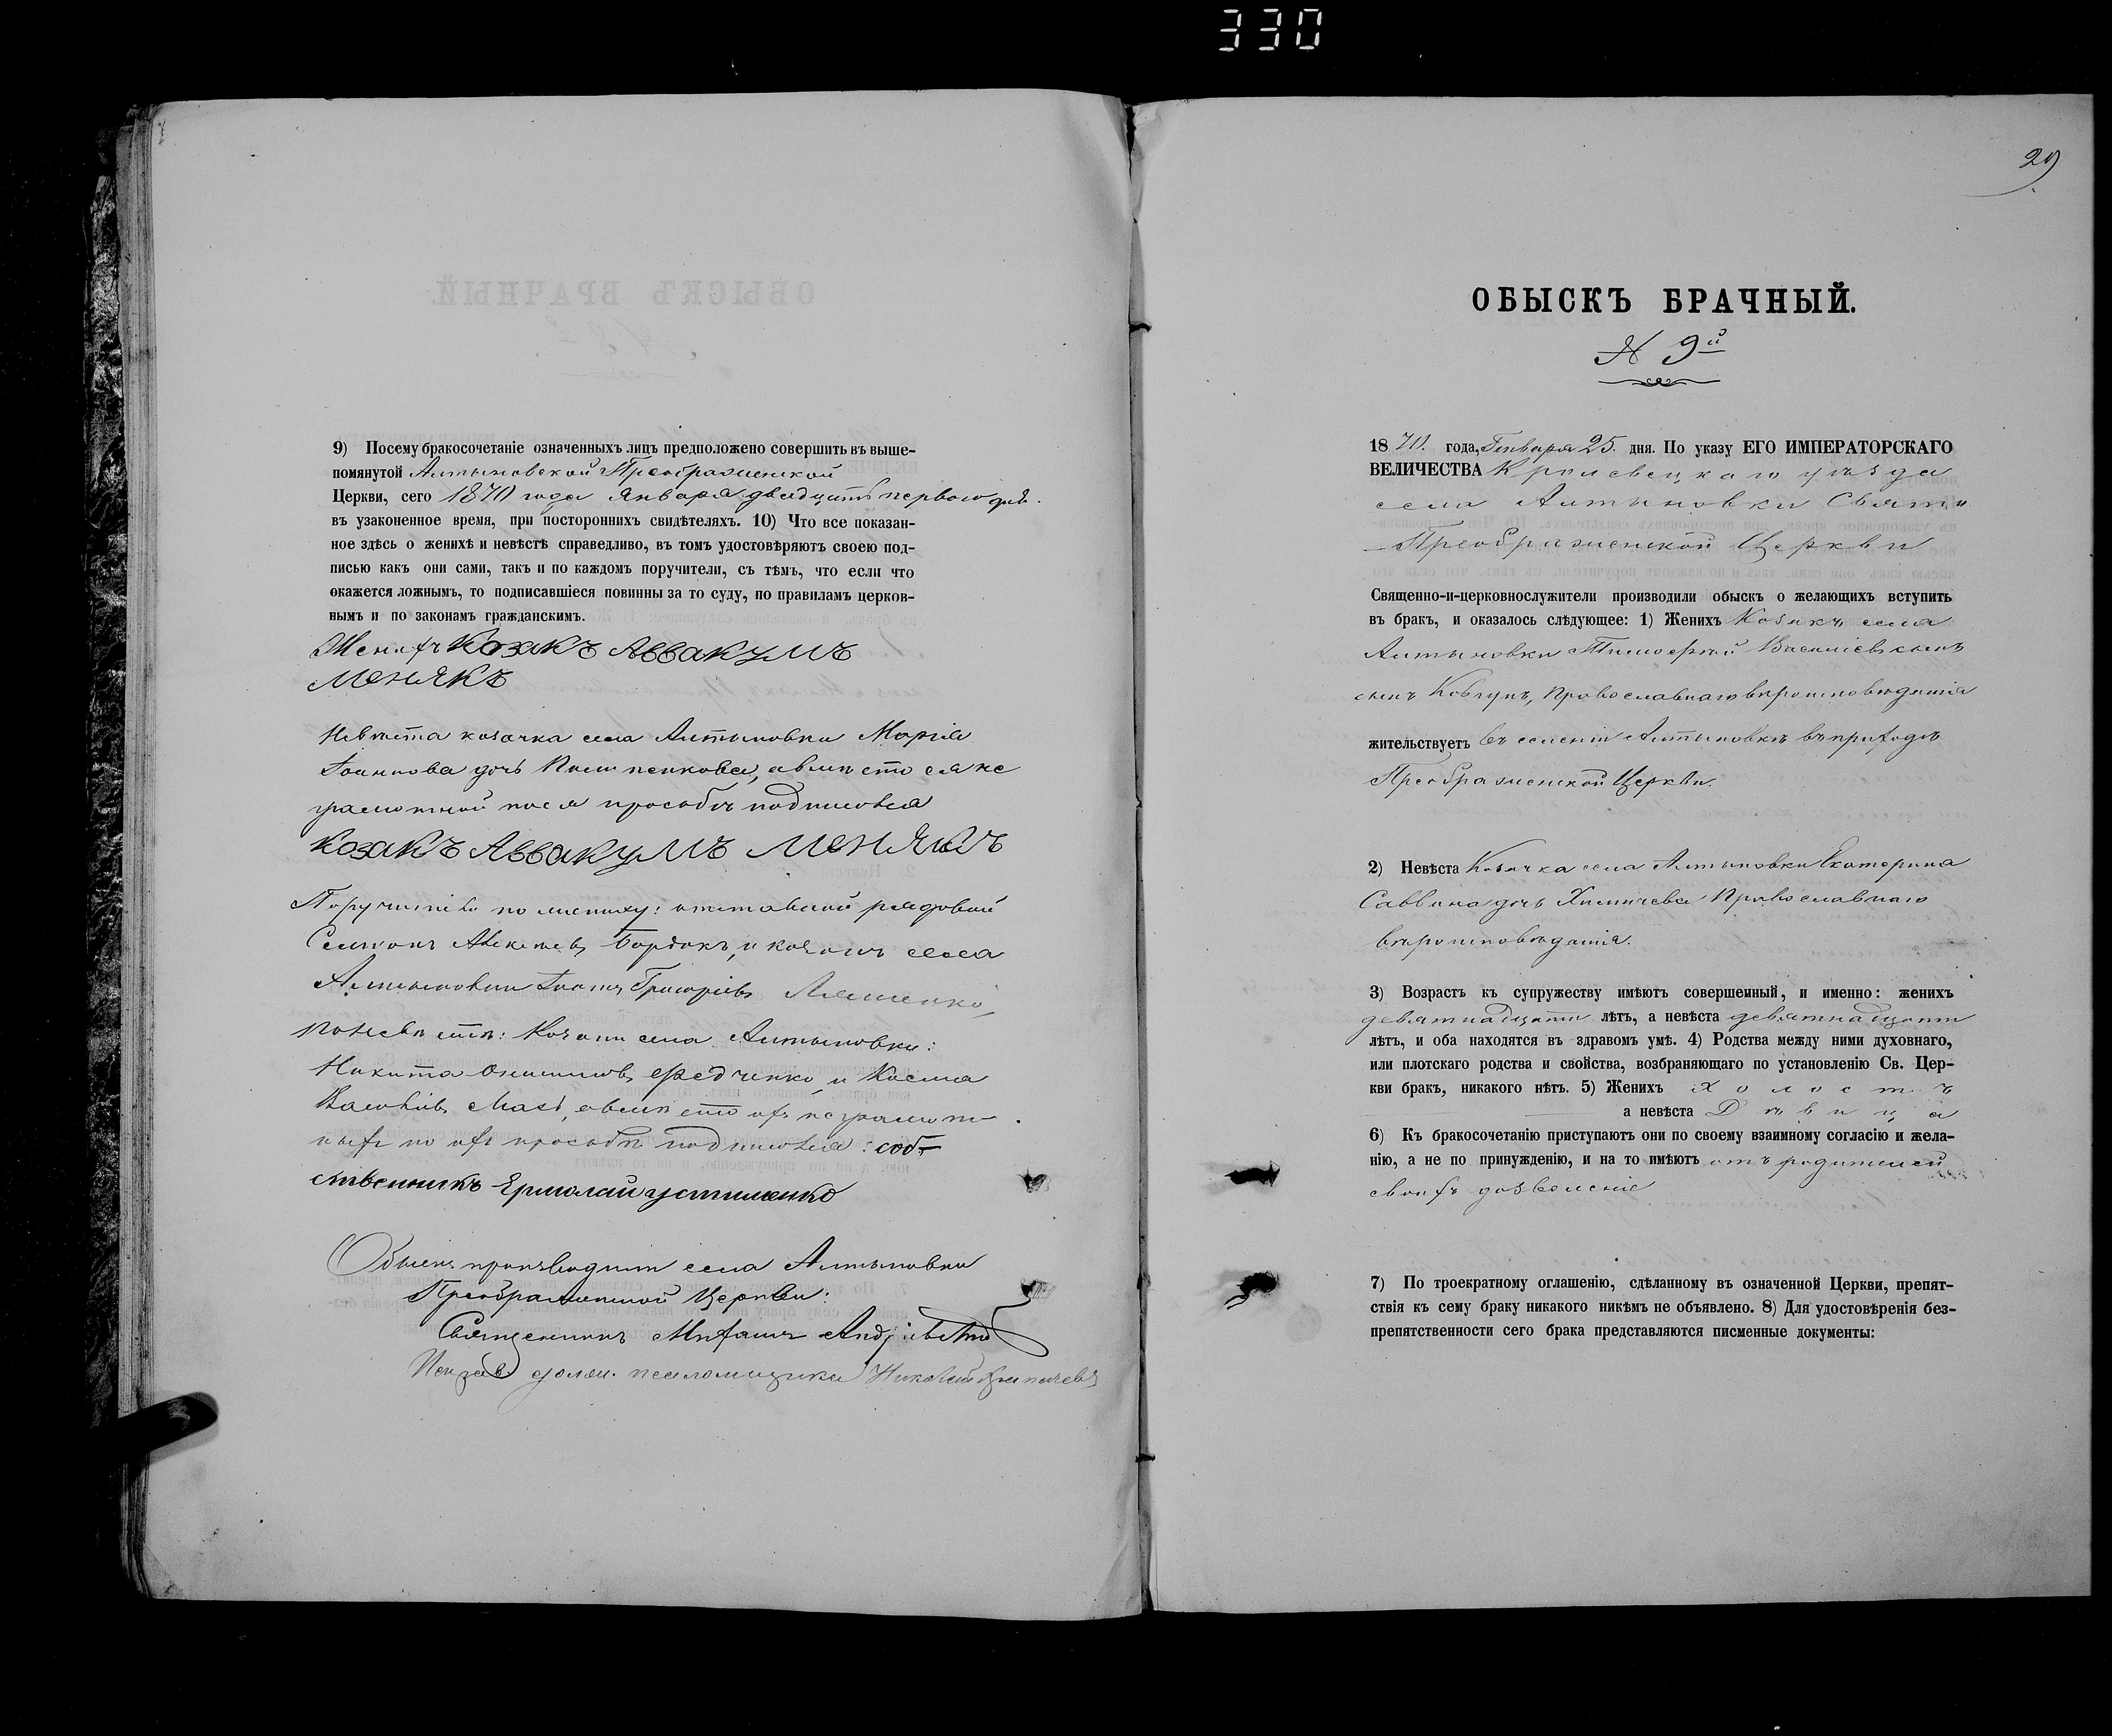 330
9) Посему бракосочетаніе означенныхъ лицъ предположено совершить въ выше-
помянутой Алтыновской Преображенской
Церкви, сего 1870 года Января двадцать перваго дня.
въ узаконенное время, при постороннихъ свидѣтеляхъ. 10) Что все показан-
ное здѣсь о женихѣ и невѣстѣ справедливо, въ томъ удостовѣряютъ своею под-
писью какъ они сами, такъ и по каждомъ поручители, съ тѣмъ, что если что
окажется ложнымъ, то подписавшіеся повинны за то суду, по правиламъ церков-
нымъ и по законамъ гражданскимъ.
Женихъ козакъ Аввакумъ
Менякъ
Невѣста козачка села Алтыновки Марія
Іоаннова дочь, а вмѣсто ея не
грамотной по ея прозьбѣ подписался
козакъ Аввакумъ Менякъ
Поручители по жениху: отставной рядовой
Семіонъ, и козакъ села
Алтыновки Іоаннъ Григоріевъ Ляшенко
по невѣстѣ: Козаки села Алтыновки:
Никита Онисимовъ Федченко и Косма
а вмѣсто ихъ неграмот-
ныхъ по ихъ прозьбѣ подписался: соб-
ственникъ Ермолай Устименко
Обыскъ производили села Алтыновки
Преображенской Церкви:
Священникъ Михаилъ
должн. псаломщика Николай
29
ОБЫСКЪ БРАЧНЫЙ.
N 9й
1870. года, Генваря 25. дня. По указу ЕГО ИМПЕРАТОРСКАГО
ВЕЛИЧЕСТВА Кролевецкаго уѣзда
села Алтыновки Свято
Преображенской Церкви
Священно-и-церковнослужители производили обыскъ о желающихъ вступить
въ бракъ, и оказалось слѣдующее: 1) Женихъ Козакъ села
Алтыновки Тимофей Василіевъ сынъ
сынъ Ковтунъ, Православнаго вѣроисповѣданія
жительствуетъ въ селеніи Алтыновкѣ въ приходѣ
Преображенской Церкви.
2) Невѣста Козачка села Алтыновки Екатерина
Саввина дочь Химичева Православнаго
вѣроисповѣданія.
3) Возрастъ къ супружеству имѣютъ совершенный, и именно: женихъ
девятнадцати лѣтъ, а невѣста девятнадцати
лѣтъ, и оба находятся въ здравомъ умѣ. 4) Родства между ними духовнаго,
или плотскаго родства и свойства, возбраняющаго по установленію Св. Цер-
кви бракъ, никакого нѣтъ. 5) Женихъ Холостъ
а невѣста Дѣвица
6) Къ бракосочетанію приступаютъ они по своему взаимному согласію и жела-
нію, а не по принужденію, и на то имѣютъ отъ родителей
своихъ дозволеніе
7) По троекратному оглашенію, сдѣланному въ означенной Церкви, препят-
ствія къ сему браку никакого никѣмъ не объявлено. 8) Для удостовѣренія без-
препятственности сего брака представляются писменные документы: